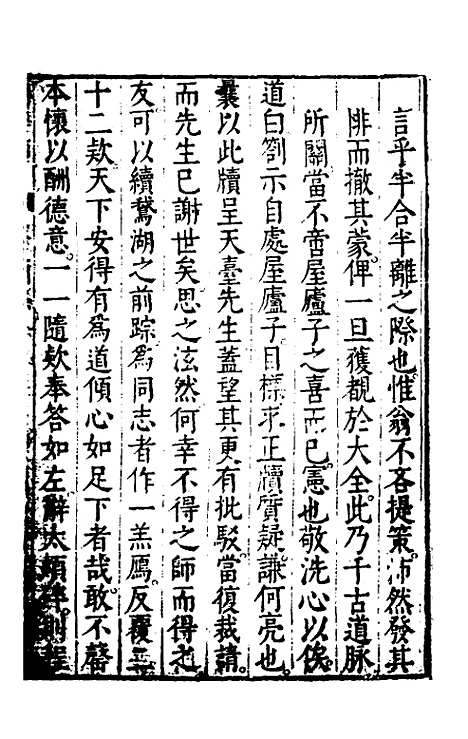 言乎半合半離之際也惟翁不吝提策沛然發其
悱而撤其蒙俾一旦獲覩於大全此乃千古道脉
所關當不啻屋廬子之喜而已憲也敬洗心以俟
道白劄示自處屋廬子目樣求正牘質疑謙何亮也
曩以此牘呈天臺先生蓋望其更有批駁當復裁請
而先生已謝世矣思之泫然何幸不得之師而得之
友可以續鵞湖之前踪為同志者作一羔鴈反覆三
十二欵天下安得有為道傾心如足下者哉敢不罄
本懷以酬德意一一隨欵奉答如左辭太煩